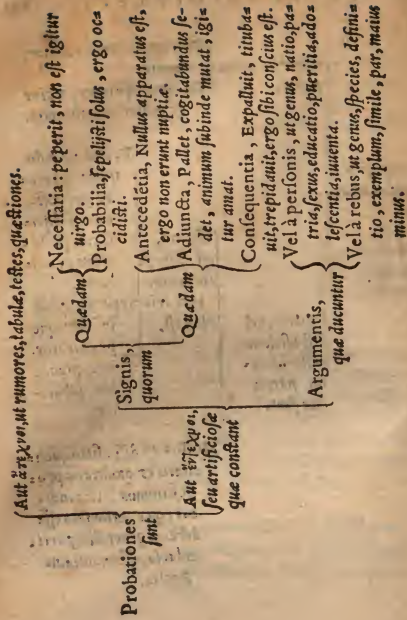 Probationes
sunt
Aut ἄτεχνοι, ut rumores, tabulæ, testes, quæstiones.
Aut ἔντεχνοι,
seu artificiosæ
quæ constant
Signis,
quorum
Quædam
Necessaria: peperit, non est igitur
uirgo.
Probabilia, sepelisti solus, ergo oc⸗
cidisti.
Quædam
Antecedẽtia, Nullus apparatus est,
ergo non erunt nuptiæ.
Adiuncta, Pallet, cogitabundus se⸗
det, animum subinde mutat, igi⸗
tur amat.
Consequentia, Expalluit, tituba⸗
uit, trepidauit, ergo sibi conscius est.
Argumentis,
quæ ducuntur
Vel à personis, ut genus, natio, pa⸗
tria, sexus, educatio, pueritia, ado⸗
lescentia, iuuenta.
Vel à rebus, ut genus, species, defini⸗
tio, exemplum, simile, par, maius
minus.